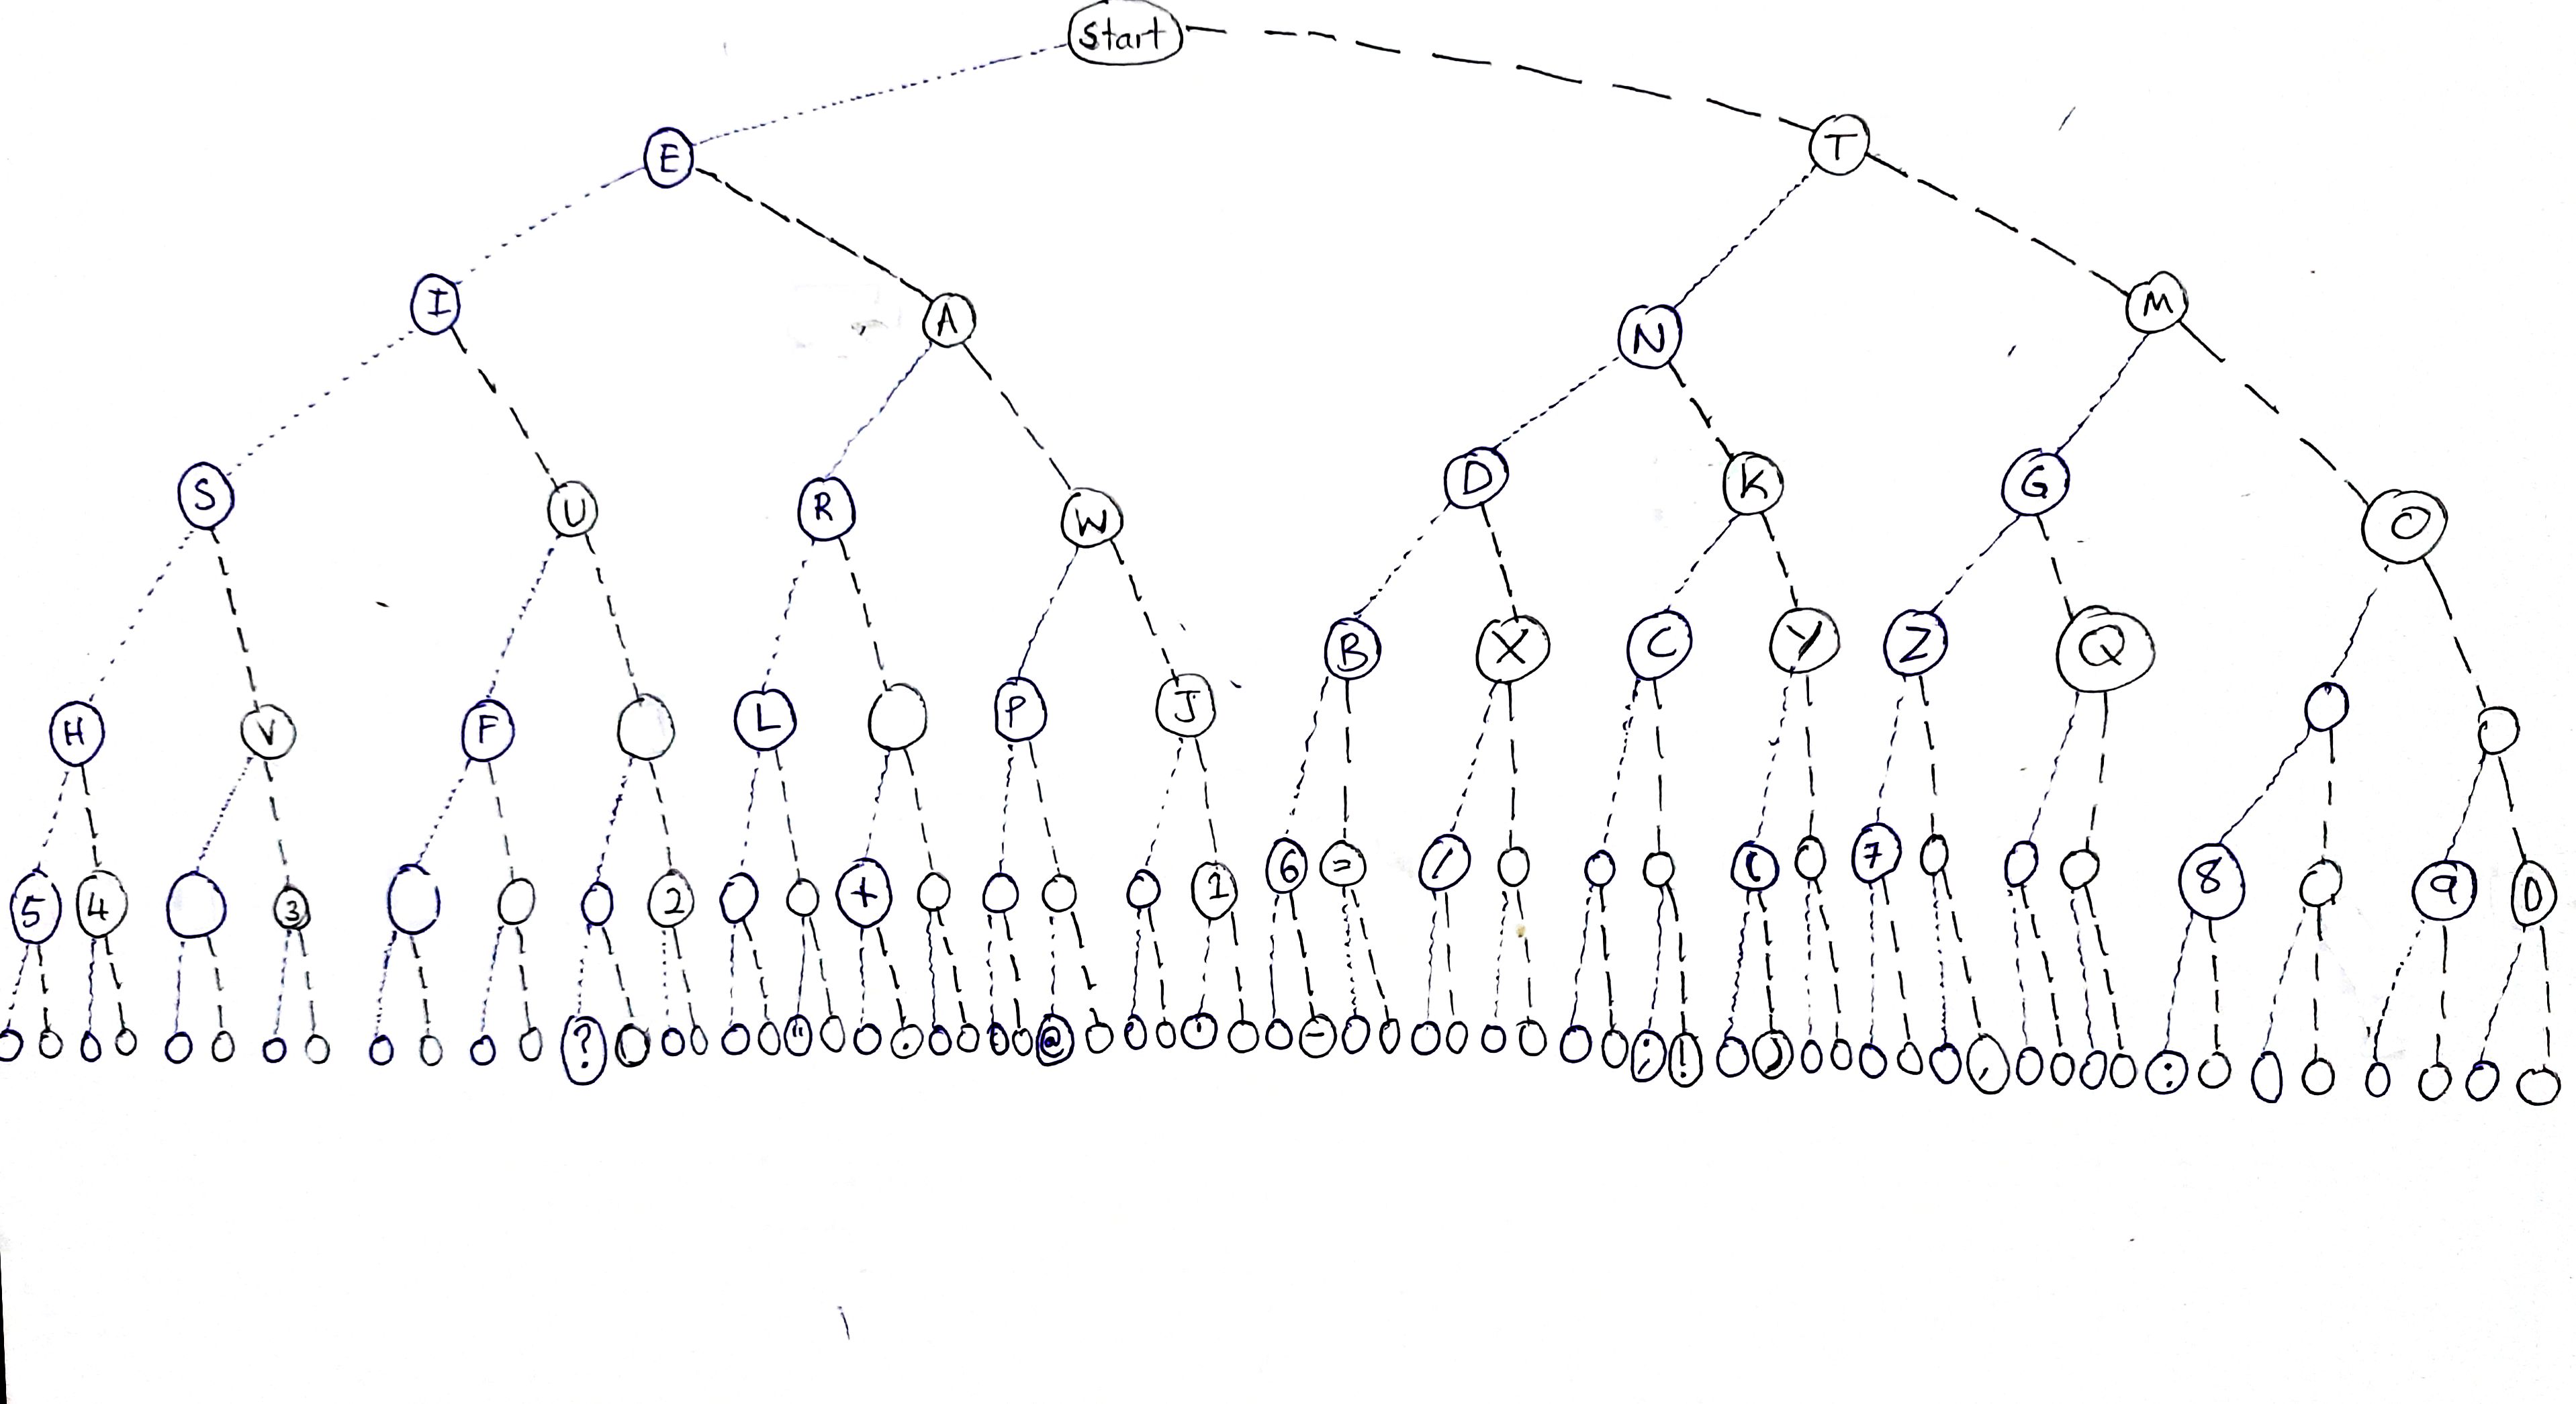 Start
E T
I A N M
S U R W D K G O
H V F L P J B X C Y Z Q
5 4 3 2 + 1 6 = / ( 7 8 9 0
? " . @ ' - ; ! ) , :